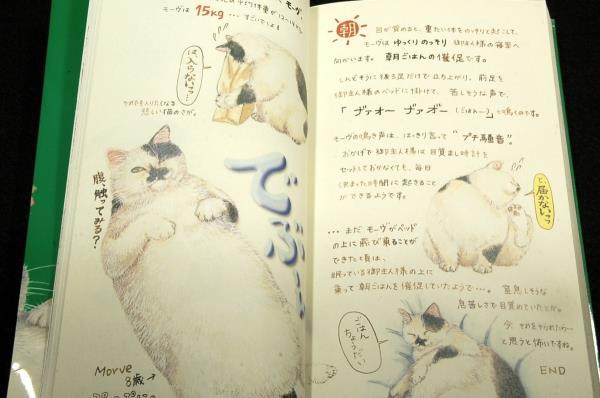 モーヴは 15kg … すごいでしょ!
は、入らないっっ…
それでも入りたくなる
悲しい猫のさが。
でぶ
腹、触ってみる?
Morve
8歳
朝
目が覚めると、重たい体をのっそりと起こして、
モーヴは ゆっくり のっそり 御主人様の寝室へ
向かいます。 朝ごはんの催促です。
しんどそうに後ろ足だけで立ち上がり、前足を
御主人様のベッドに掛けて、苦しそうな声で、
「ヴァオー ヴァオー (ごはん〜)」と鳴くのです。
モーヴの鳴き声は、はっきり言って "プチ騒音"。
おかげで御主人様は目覚まし時計を
セットしておかなくても、毎日
決まった時間に起きること
ができるようです。
と、届かないっっ
… まだ モーヴがベッド
の上に飛び乗ることが
できた頃は、
眠っている御主人様の上に
乗って朝ごはんを催促していたようで…。 窒息しそうな
息苦しさで目覚めていたとか。
今、それをやられたら〜
と思うと怖いですね。
ごはん ちょうだい
END